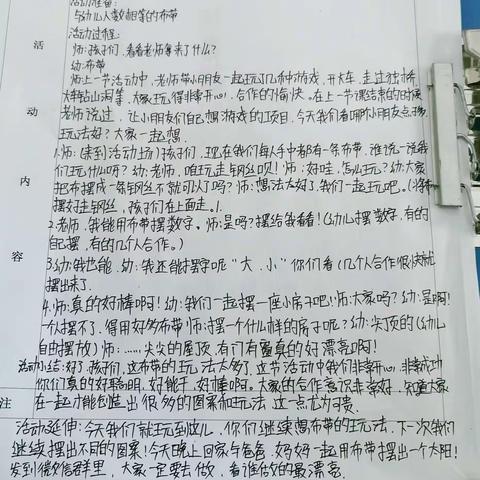 活动准备:
与幼儿人数相等的布带
活动过程:
师:孩子们,看看老师拿来了什么?
幼:布带
师:上一节活动中,老师带小朋友一起玩了几种游戏,开火车,走过独木桥
火车钻山洞等,大家玩得非常开心,合作的愉快。在上一节课结束的时候
老师说过,让小朋友们自己想游戏的项目,今天我们看哪个小朋友点子多
玩法好?大家一起想
1.师:(来到活动场)孩子们,现在我们每人手中都有一条布带,谁说一说我
们玩什么吗?幼:老师,咱玩走钢丝呗!师:好哇,怎么玩?幼:大家
把布摆成一条钢丝不就可以了吗?师:想法太好了,我们一起玩吧。(将布
摆好走钢丝,孩子们在上面走。)
2.老师,我能用布带摆数字。师:是吗?摆给我看看!(幼儿摆数字,有的
自己摆,有的几个人合作。)
3.幼:我也能,幼:我还能摆字呢“大、小”你们看(几个人合作很快就
摆出来了
4.师:真的好棒啊!幼:我们一起摆一座小房子吧!师:大家吗?幼:是啊!
一个人摆不了,得用好多布带 师:摆一个什么样的房子呢?幼:尖顶的(幼儿
自由摆放)师:……尖尖的屋顶,有门有窗真的好漂亮啊!
活动小结:好了,孩子们,这布带的玩法太多了,这节活动中我们非常开心,非常成功
你们真的好聪明,好能干,好棒啊。大家的合作意识非常好,知道大家
在一起才能创造出很多的图案和玩法,这一点尤为可贵.
活动延伸:今天我们就玩到这儿,你们继续想布带的玩法,下一次我们
继续摆出不同的图案!今天晚上回家与爸爸、妈妈一起用布带摆出一个太阳!
发到微信群里,大家一定要去做,看谁做的最漂亮.
活
动
内
容
注